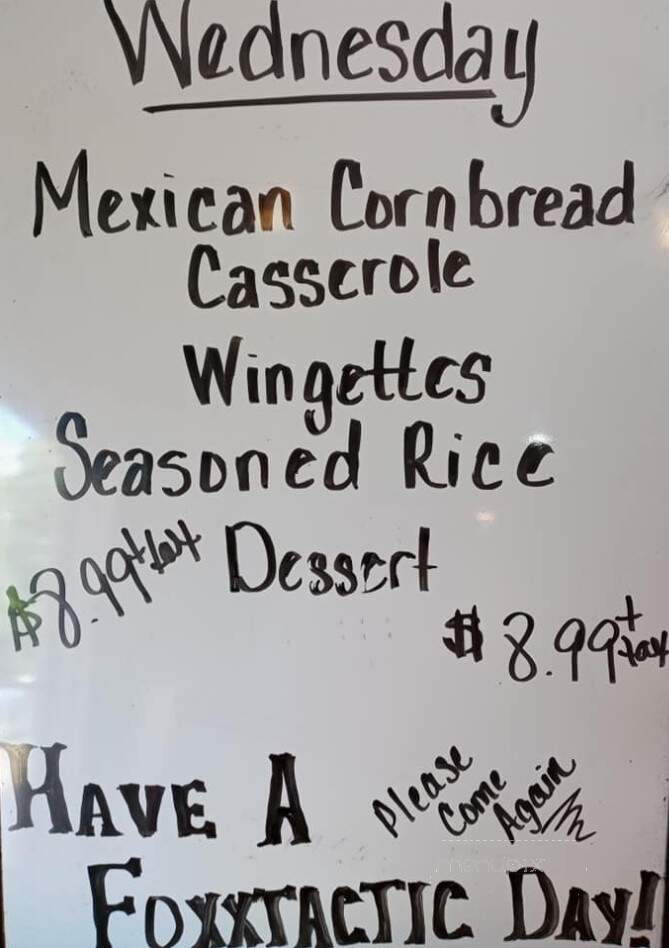 Wednesday
Mexican Cornbread
Casserole
Wingettes
Seasoned Rice
$8.99 + tax Dessert
$8.99 + tax
Please
Come
Again
HAVE A
FOXXTACTIC DAY!